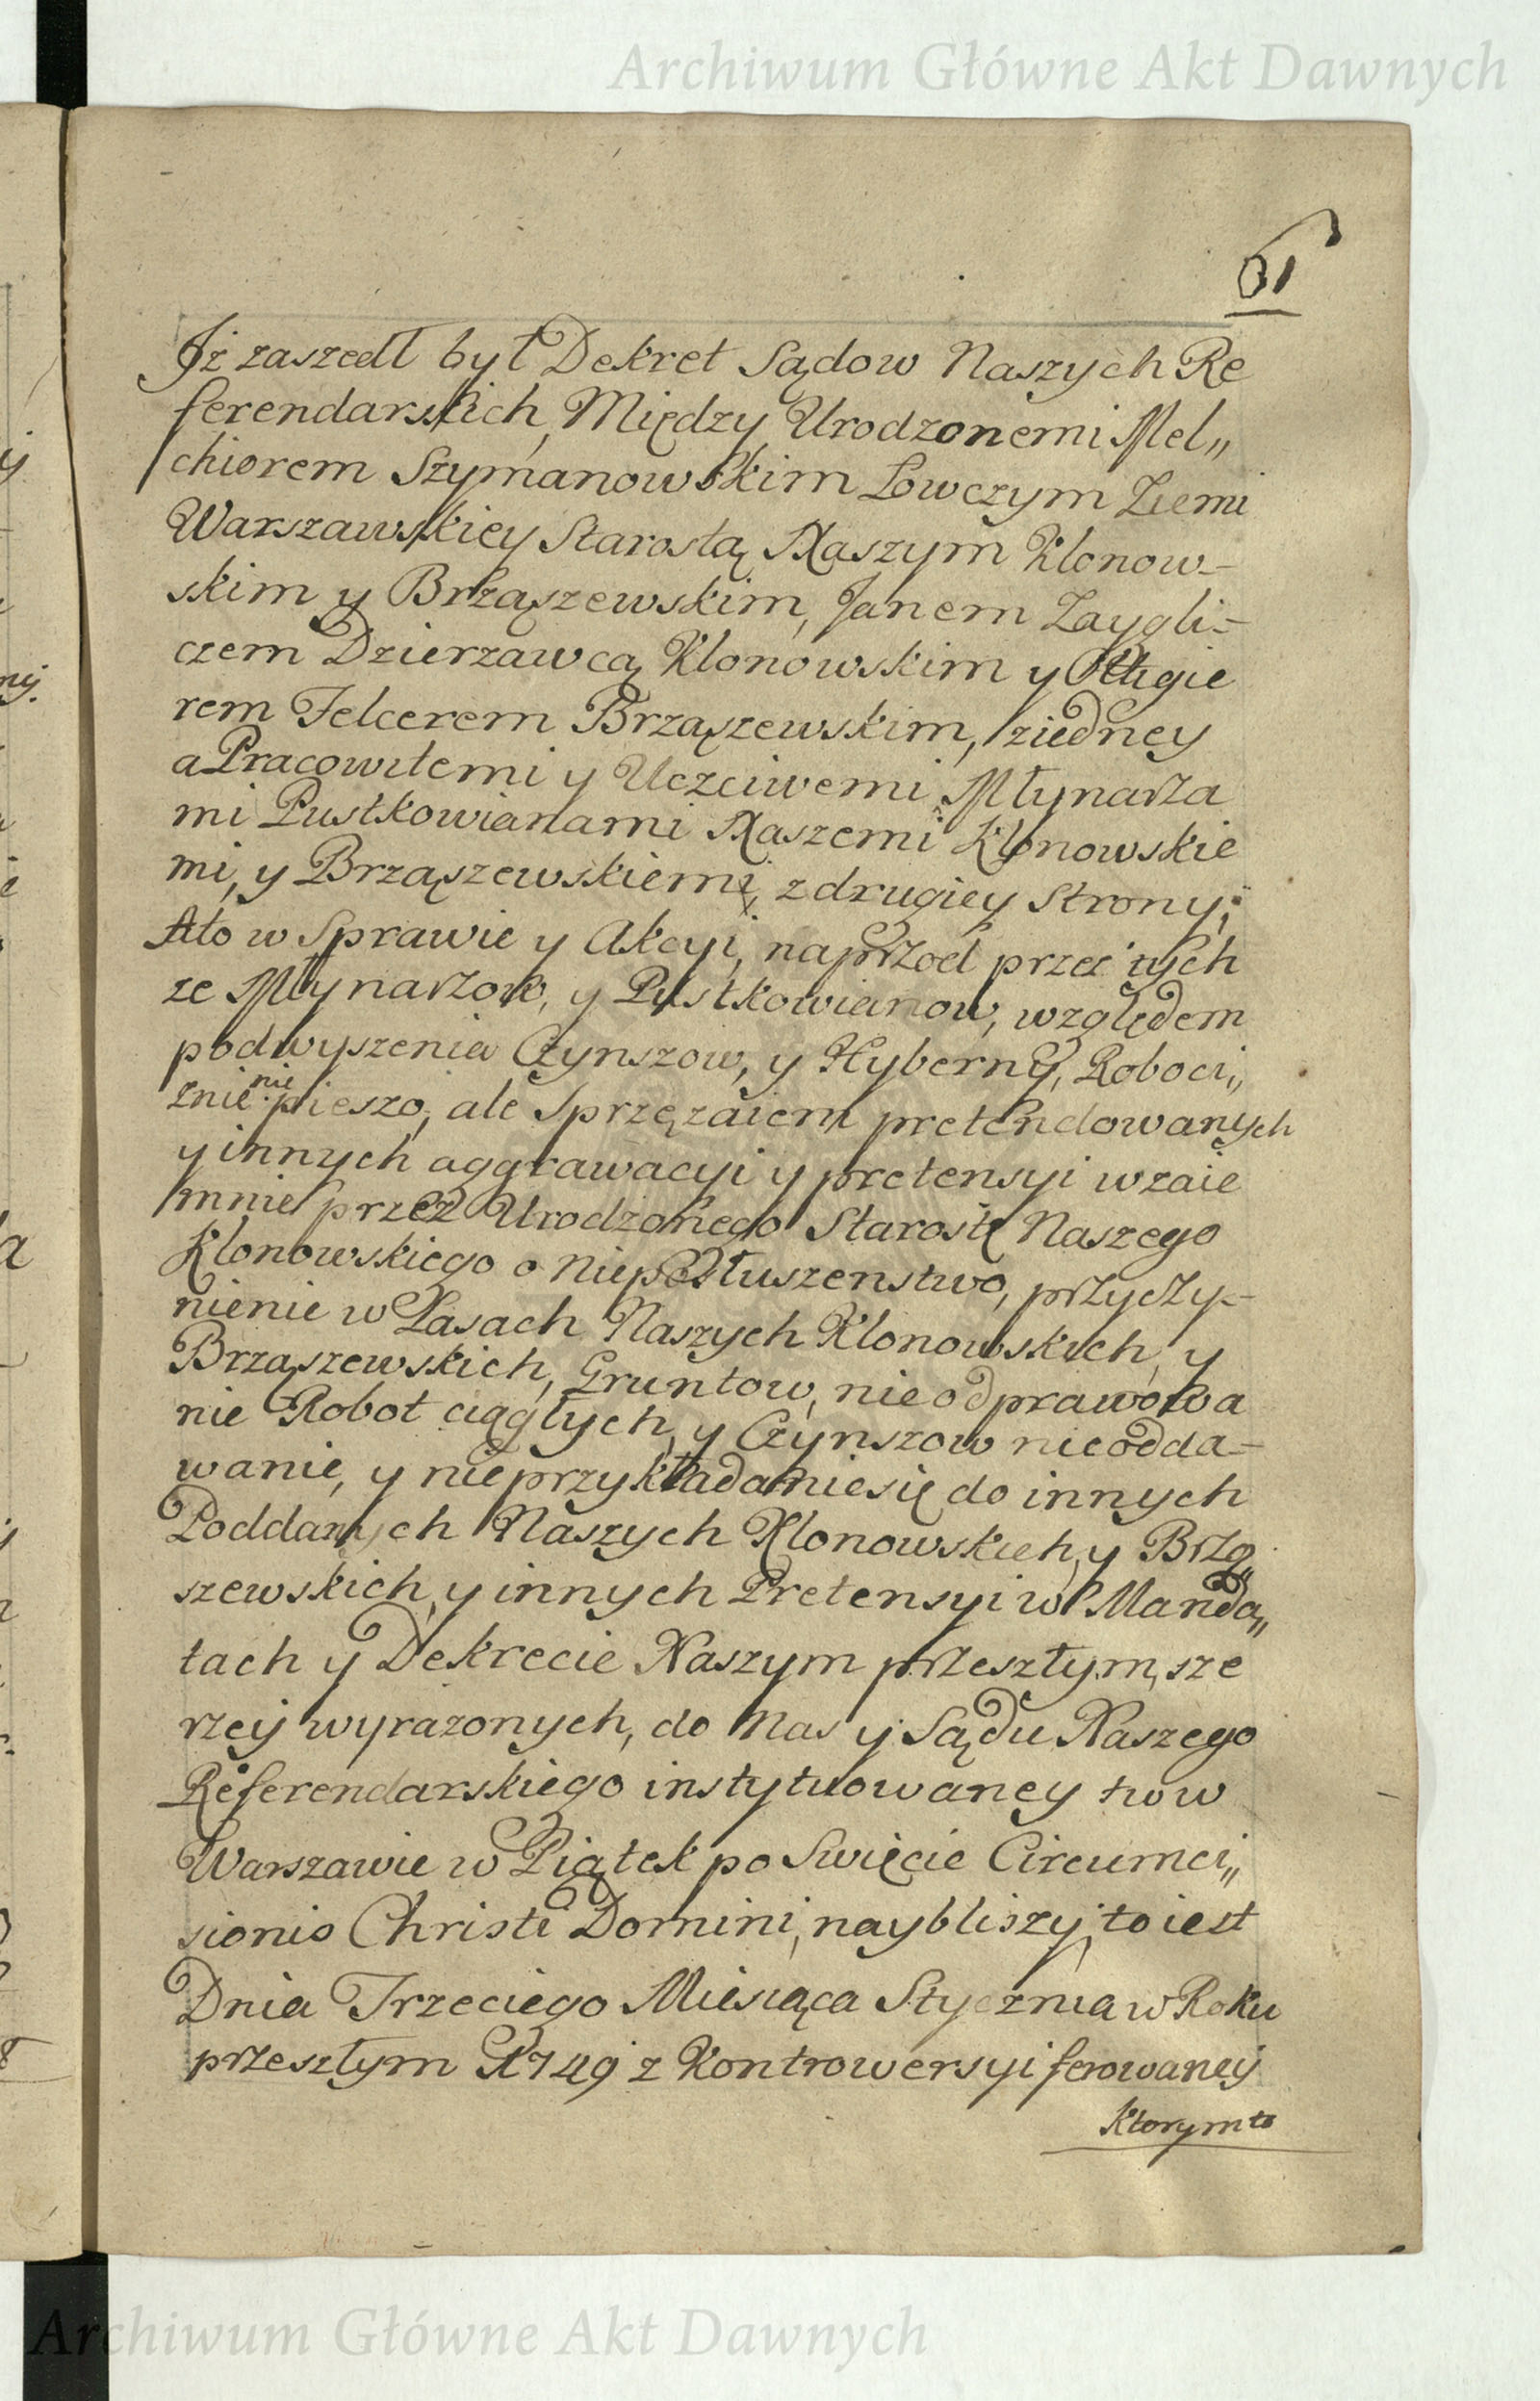 Archiwum Główne Akt Dawnych
61
Jż zaszedł był Dekret Sądow Naszych Re
ferendarskich, Między Urodzonemi Mel„
chiorem Szymanowskim Łowczym Ziemi
Warszawskiey Starostą Naszym Klonow-
skim y Brząszewskim, Janem Zaygli-
czem Dzierzawcą Klonowskim y
rem Felcerem Brząszewskim, ziedney
a Pracowitemi y Uczciwemi Młynarza
mi Pustkowianami Naszemi Klonowskie
mi, y Brząszewskiemi, z drugiey Strony;
Ato w Sprawie y Akcyi, naprzod przez tych
ze Młynarzow, y Pustkowianow, względem
podwyszenia Czynszow, y Hyberny, Roboci„
znie nie pieszo, ale Sprzęzaiem pretendowanych
y innych aggrawacyi y pretensyi wzaie
mnie przez Urodzonego Starostę Naszego
Klonowskiego o Nieposłuszenstwo, przyczy-
nienie w Lasach Naszych Klonowskich, y
Brząszewskich, Gruntow, nieodprawowa
nie Robot ciągłych, y Czynszow nieodda-
wanie, y nieprzykładaniesię do innych
Poddanych Naszych Klonowskich, y Brzą„
szewskich, y innych Pretensyi w Manda„
tach y Dekrecie Naszym przeszłym, sze
rzey wyrazonych, do Nas y Sądu Naszego
Referendarskiego instytuowaney tu w
Warszawie w Piątek po Swięcie Circumci„
sionis Christi Domini, naybliszy, to iest
Dnia Trzeciego Miesiąca Stycznia w Roku
przeszłym 1749 z Kontrowersyi ferowaney
Ktorym to
Archiwum Główne Akt Dawnych